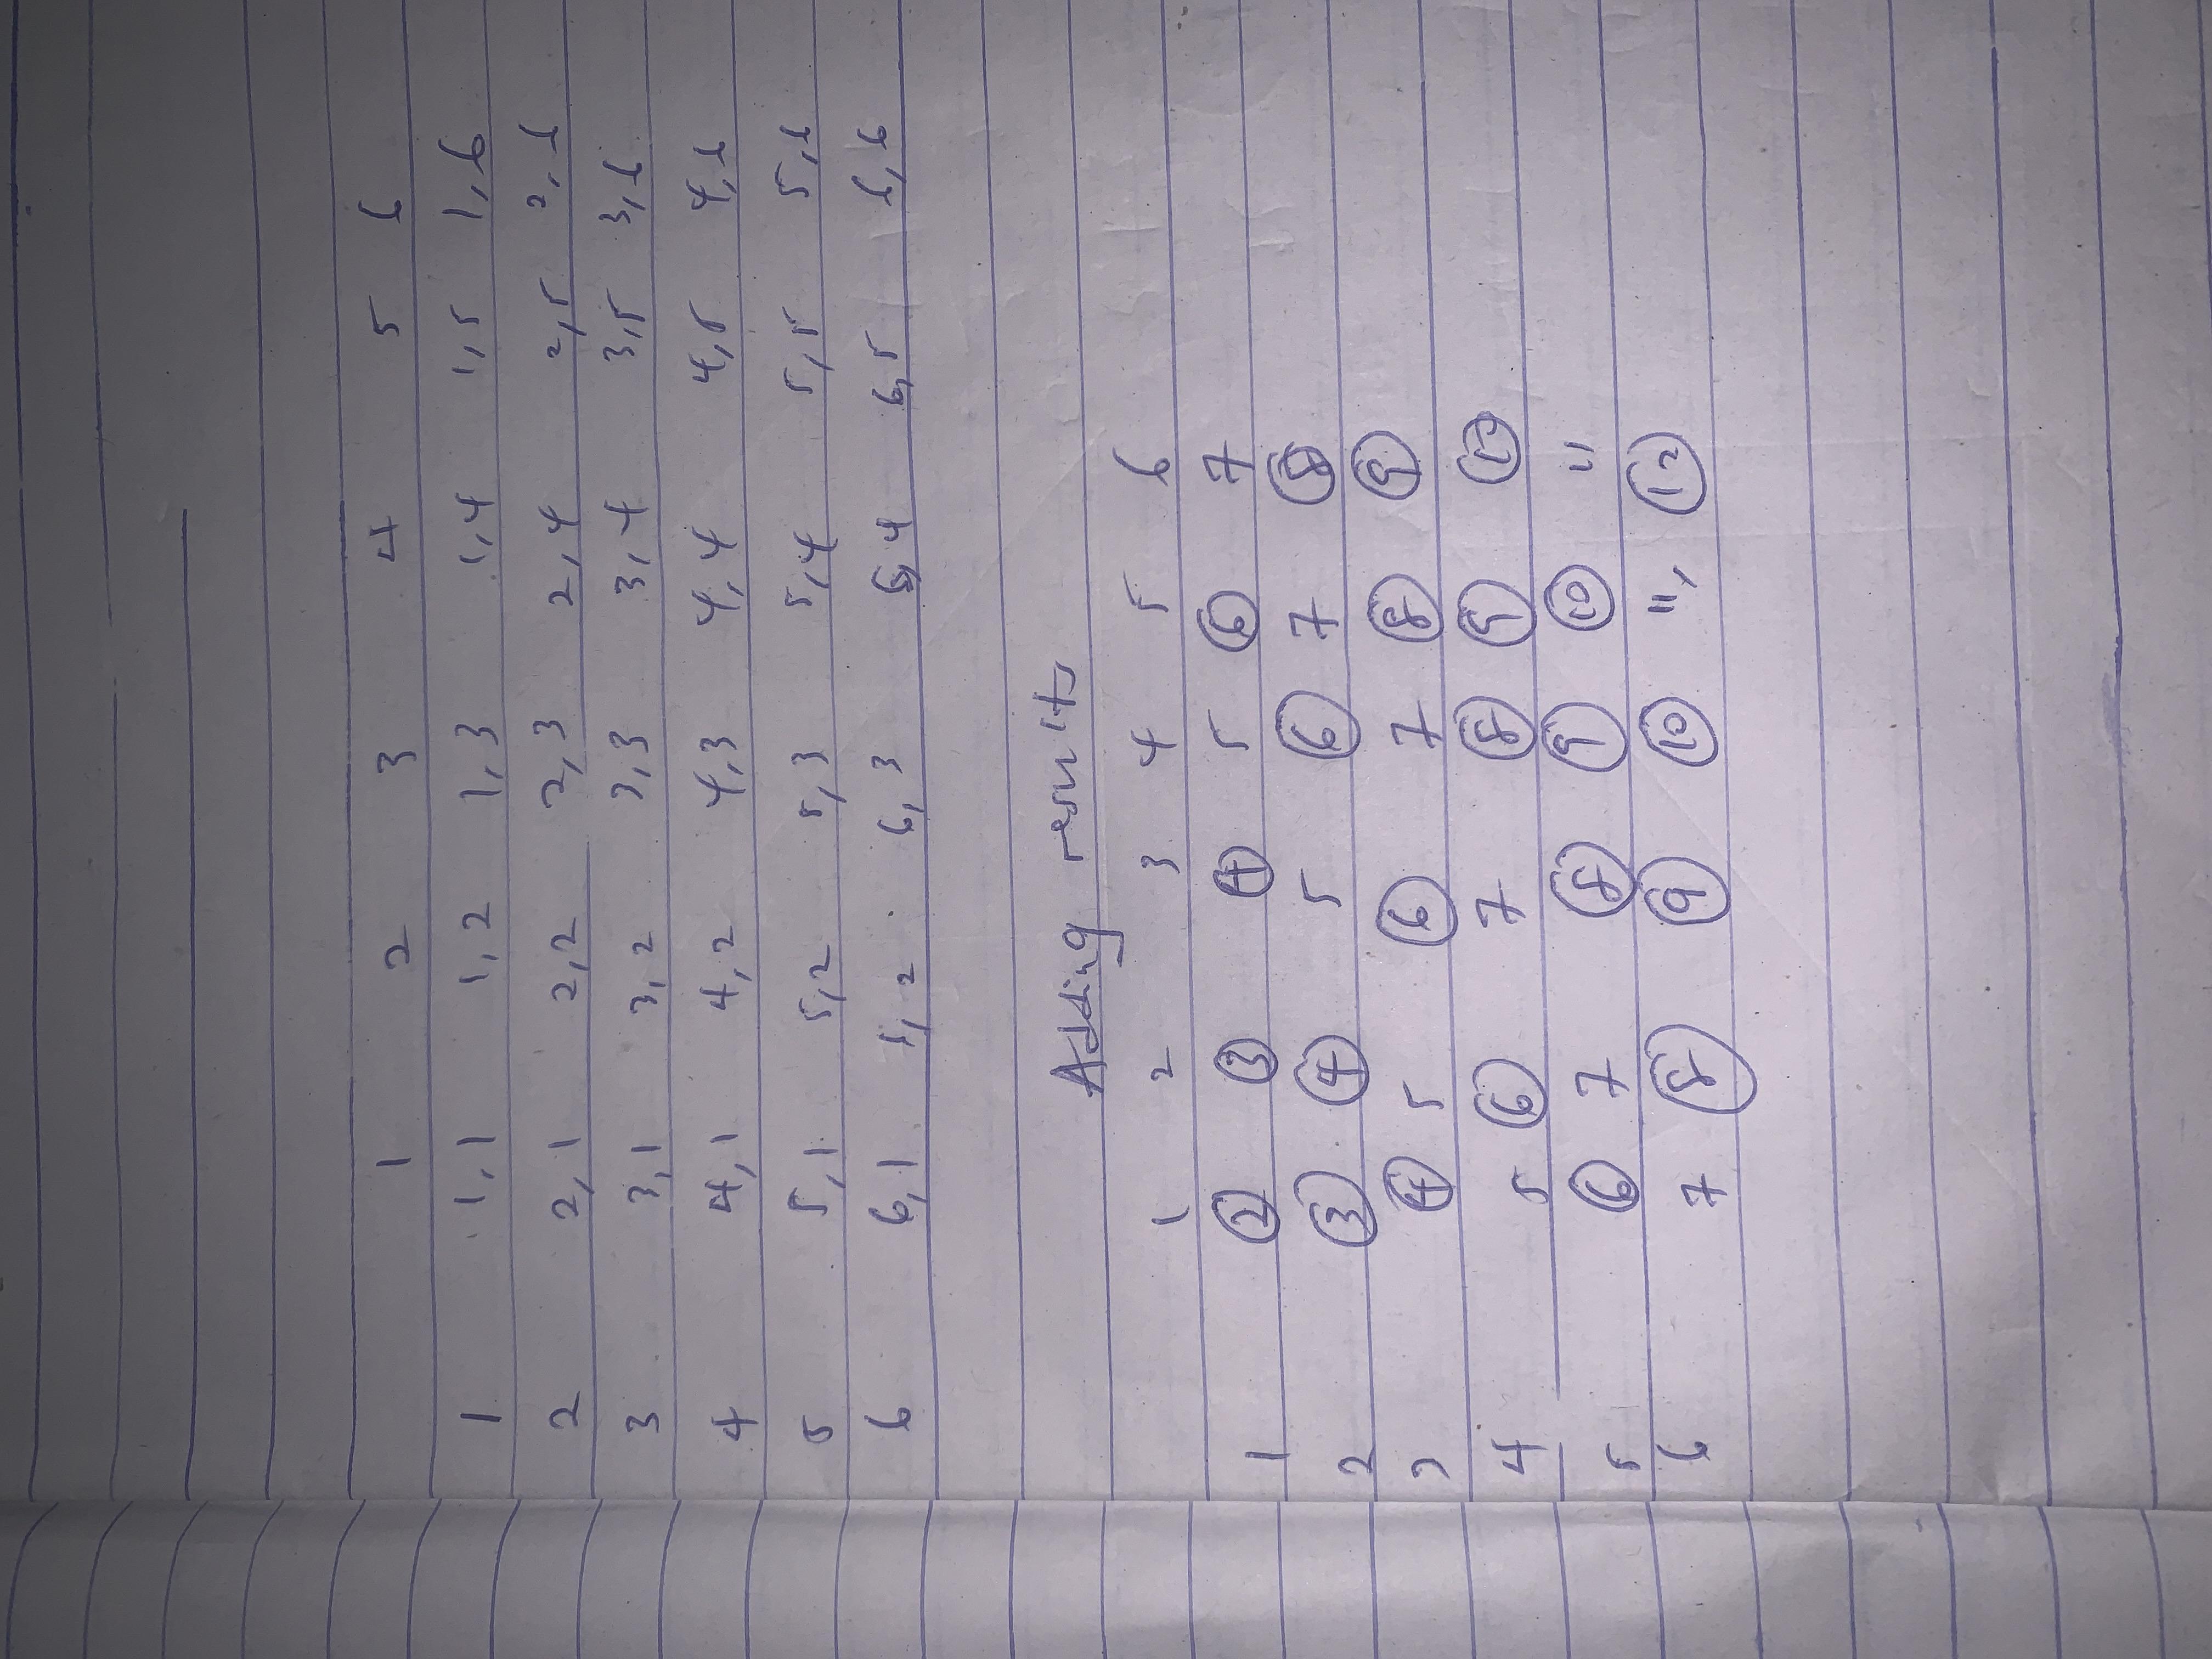 1 2 3 4 5 6
1 1,1 1,2 1,3 1,4 1,5 1,6
2 2,1 2,2 2,3 2,4 2,5 2,6
3 3,1 3,2 3,3 3,4 3,5 3,6
4 4,1 4,2 4,3 4,4 4,5 4,6
5 5,1 5,2 5,3 5,4 5,5 5,6
6 6,1 6,2 6,3 6,4 6,5 6,6
Adding results
1 2 3 4 5 6
1 2 3 4 5 6 7
2 3 4 5 6 7 8
3 4 5 6 7 8 9
4 5 6 7 8 9 10
5 6 7 8 9 10 11
6 7 8 9 10 11, 12